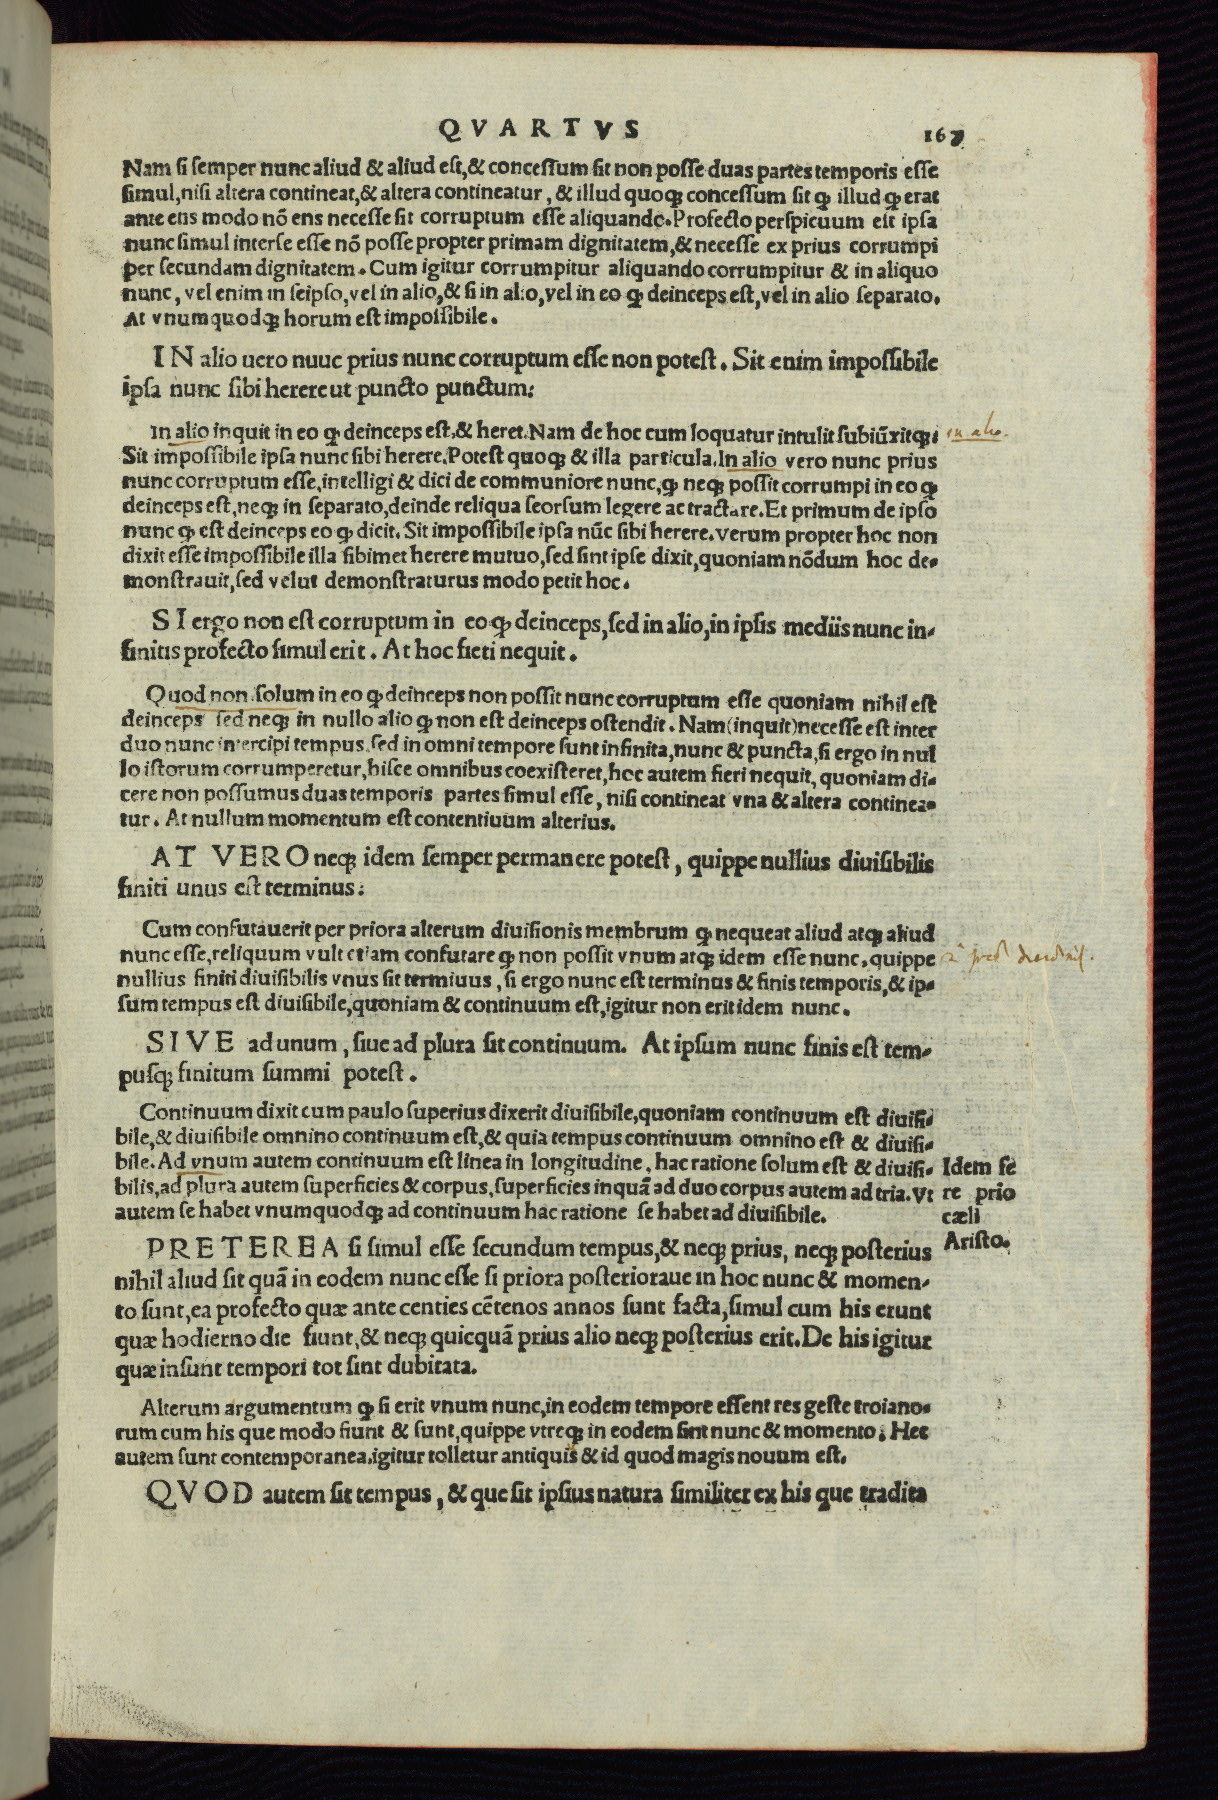 QVARTVS
167
Nam si semper nunc aliud & aliud est, & concessum sit non posse duas partes temporis esse
simul, nisi altera contineat, & altera contineatur, & illud quoqꝫ concessum sit ꝙ illud ꝙ erat
ante ens modo nō ens necesse sit corruptum esse aliquando. Profecto perspicuum est ipsa
nunc simul interse esse nō posse propter primam dignitatem, & necesse ex prius corrumpi
per secundam dignitatem. Cum igitur corrumpitur aliquando corrumpitur & in aliquo
nunc, vel enim in seipso, vel in alio, & si in alio, vel in eo ꝙ deinceps est, vel in alio separato.
At vnumquodqꝫ horum est impossibile.
IN alio uero nuuc prius nunc corruptum esse non potest. Sit enim impossibile
ipsa nunc sibi herere ut puncto punctum:
In alio inquit in eo ꝙ deinceps est, & heret. Nam de hoc cum loquatur intulit subiūxitqꝫ:
in alio.
Sit impossibile ipsa nunc sibi herere. Potest quoqꝫ & illa particula. In alio vero nunc prius
nunc corruptum esse, intelligi & dici de communiore nunc, ꝙ neqꝫ possit corrumpi in eo ꝙ
deinceps est, neqꝫ in separato, deinde reliqua seorsum legere ac tractare. Et primum de ipso
nunc ꝙ est deinceps eo ꝙ dicit. Sit impossibile ipsa nūc sibi herere. verum propter hoc non
dixit esse impossibile illa sibimet herere mutuo, sed sint ipse dixit, quoniam nōdum hoc de-
monstrauit, sed velut demonstraturus modo petit hoc.
SI ergo non est corruptum in eo ꝙ deinceps, sed in alio, in ipsis mediis nunc in-
finitis profecto simul erit. At hoc fieri nequit.
Quod non solum in eo ꝙ deinceps non possit nunc corruptum esse quoniam nihil est
deinceps sed neqꝫ in nullo alio ꝙ non est deinceps ostendit. Nam (inquit) necesse est inter
duo nunc intercipi tempus, sed in omni tempore sunt infinita, nunc & puncta, si ergo in nul
lo istorum corrumperetur, hisce omnibus coexisteret, hoc autem fieri nequit, quoniam di-
cere non possumus duas temporis partes simul esse, nisi contineat vna & altera continea-
tur. At nullum momentum est contentiuum alterius.
AT VERO neqꝫ idem semper permanere potest, quippe nullius diuisibilis
finiti unus est terminus:
Cum confutauerit per priora alterum diuisionis membrum ꝙ nequeat aliud atqꝫ aliud
nunc esse, reliquum vult etiam confutare ꝙ non possit vnum atqꝫ idem esse nunc, quippe
nullius finiti diuisibilis vnus sit termiuus, si ergo nunc est terminus & finis temporis, & ip-
sum tempus est diuisibile, quoniam & continuum est, igitur non erit idem nunc.
SIVE ad unum, siue ad plura sit continuum. At ipsum nunc finis est tem-
pusqꝫ finitum summi potest.
Continuum dixit cum paulo superius dixerit diuisibile, quoniam continuum est diuisi-
bile, & diuisibile omnino continuum est, & quia tempus continuum omnino est & diuisi-
bile. Ad vnum autem continuum est linea in longitudine, hac ratione solum est & diuisi-
bilis, ad plura autem superficies & corpus, superficies inquā ad duo corpus autem ad tria. Vt
autem se habet vnumquodqꝫ ad continuum hac ratione se habet ad diuisibile.
Idem se
re prio
cæli
Aristo.
PRETEREA si simul esse secundum tempus, & neqꝫ prius, neqꝫ posterius
nihil aliud sit quā in eodem nunc esse si priora posterioraue in hoc nunc & momen-
to sunt, ea profecto quæ ante centies cētenos annos sunt facta, simul cum his erunt
quæ hodierno die fiunt, & neqꝫ quicquā prius alio neqꝫ posterius erit. De his igitur
quæ insunt tempori tot sint dubitata.
Alterum argumentum ꝙ si erit vnum nunc, in eodem tempore essent res geste troiano-
rum cum his que modo fiunt & sunt, quippe vtreqꝫ in eodem sint nunc & momento: Hec
autem sunt contemporanea, igitur tolletur antiquis & id quod magis nouum est.
QVOD autem sit tempus, & que sit ipsius natura similiter ex his que tradita